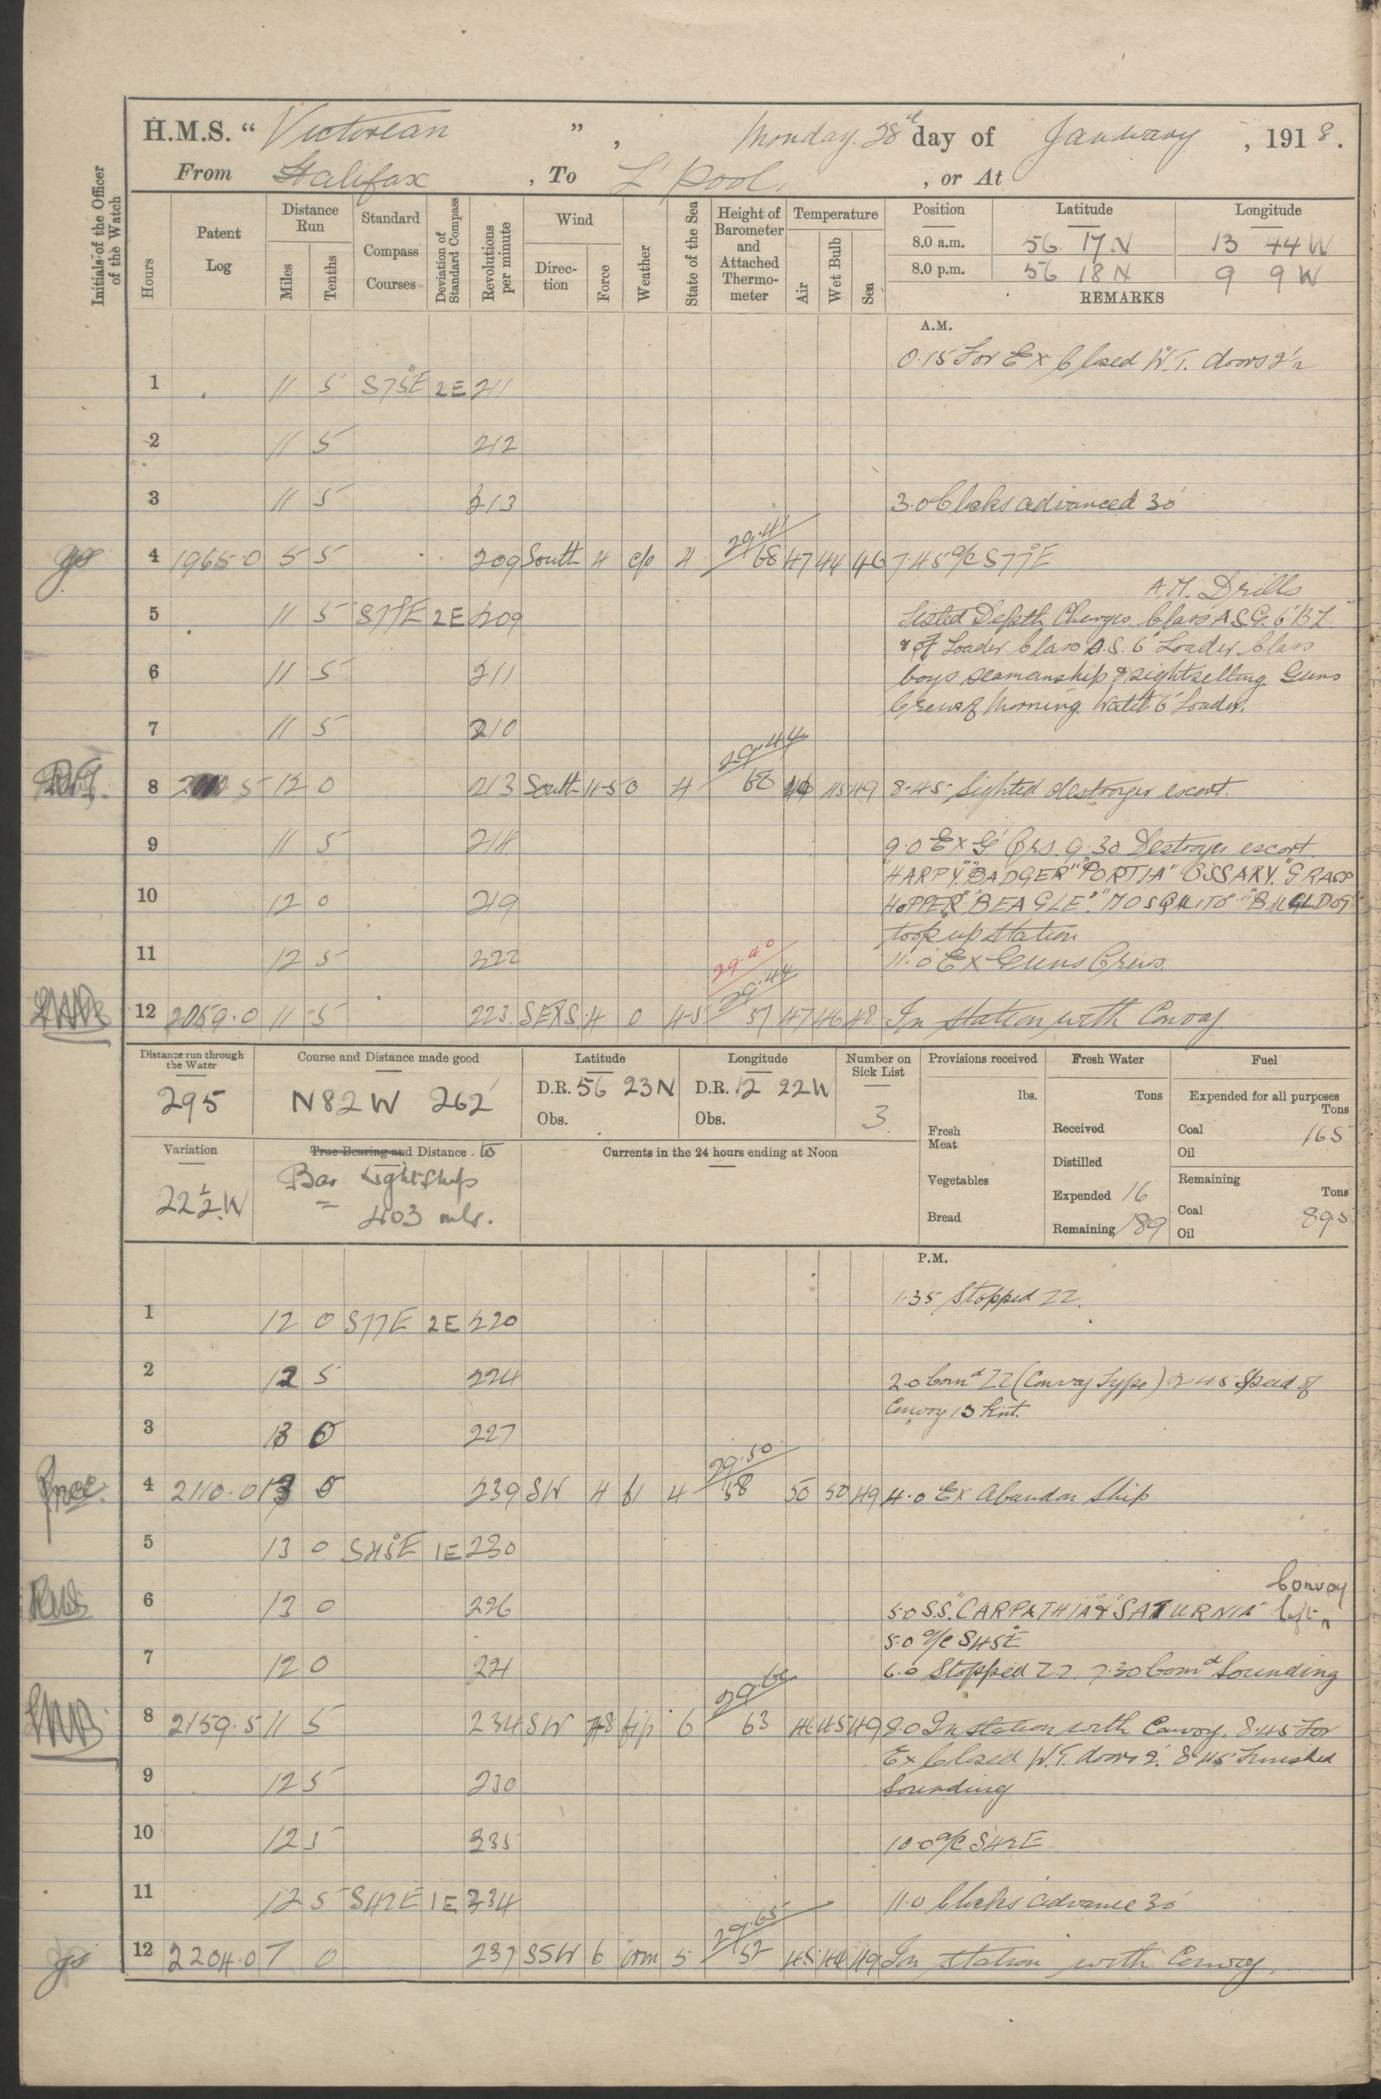 H.M.S. “ Victorian ”, Monday. 28th day of January, 1918.
From Halifax, To L'Pool, or At
Initials of the Officer of the Watch
Hours
Patent Log
Distance Run
Miles
Tenths
Standard Compass Courses
Deviation of Standard Compass
Revolutions per minute
Wind
Direction
Force
Weather
State of the Sea
Height of Barometer and Attached Thermometer
Temperature
Air
Wet Bulb
Sea
Position Latitude Longitude
8.0 a.m. 56 17 N 13 44 W
8.0 p.m. 56 18 N 9 9 W
REMARKS
A.M.
0.15 For Ex Closed W.T. doors
1 11 5 S75E 2E 211
2 11 5 212
3 11 5 213 3.0 Clocks advanced 30'
29.41
4 1965.0 5 5 209 South 4 c/p 4 68 47 44 46 7.45 a/c S77°E
A.M. Drills
5 11 5 S77E 2E 209 Tested Depth Charges. Class A.S.G. 6" B.L.
Loader Class A.S. 6" Loader Class
6 11 5 211 boys seamanship & sightsetting Guns
Crews of Morning Watch 6" Loader.
7 11 5 210
29.44
8 12 0 213 South 4-5 o 4 68 45 49 8.45 Sighted destroyer escort.
9 11 5 9.0 Ex G Crs. 9.30 Destroyer escort
"HARPY" "BADGER" "PORTIA" OSSARY. "GRASS
10 12 0 219 HOPPER" "BEAGLE." "MOSQUITO" "BULLDOG"
took up station
11 12 5 222 11.0 Ex Guns Crews.
29.40
29.44
12 2059.0 11 5 223 SExS 4 o 4-5 57 47 46 48 In station with Convoy
Distance run through the Water
295
Course and Distance made good
N82W 262'
Latitude
D.R. 56 23 N
Obs.
Longitude
D.R. 12 22 W
Obs.
Number on Sick List
3
Provisions received
lbs.
Fresh Meat
Vegetables
Bread
Fresh Water
Tons
Received
Distilled
Expended 16
Remaining 189
Fuel
Expended for all purposes
Tons
Coal 165
Oil
Remaining
Tons
Coal 895
Oil
Variation
22½ W
True Bearing and Distance to
Bar Lightship
= 403 mls.
Currents in the 24 hours ending at Noon
P.M.
1.35 Stopped ZZ.
1 12 0 S77E 2E 220
2 12 5 224 2.0 Comd ZZ (Convoy Type) 2.45 Speed of
Convoy 13 Knt.
3 13 0 227
29.50
4 2110.0 13 0 239 SW 4 4 58 50 50 49 4.0 Ex Abandon Ship
5 13 0 S45°E 1E 230
Convoy
6 13 0 226 5.0 S.S. "CARPATHIA" & "SATURNIA" left
5.0 a/c S45E
7 12 0 6.0 Stopped ZZ. 7.30 Comd Sounding
8 2159.5 11 5 234 SW 7-8 6 63 45 49 8.0 In station with Convoy. 8.45 For
Ex Closed W.T. doors 2'. 8.45 Finished
9 12 5 230 Sounding
10 12 5 235 10.0 a/c S42E
11 12 5 S42E 1E 234 11.0 Clocks advance 30'
29.65
12 2204.0 7 0 237 SSW 6 5 52 45 44 49 In station with Convoy.